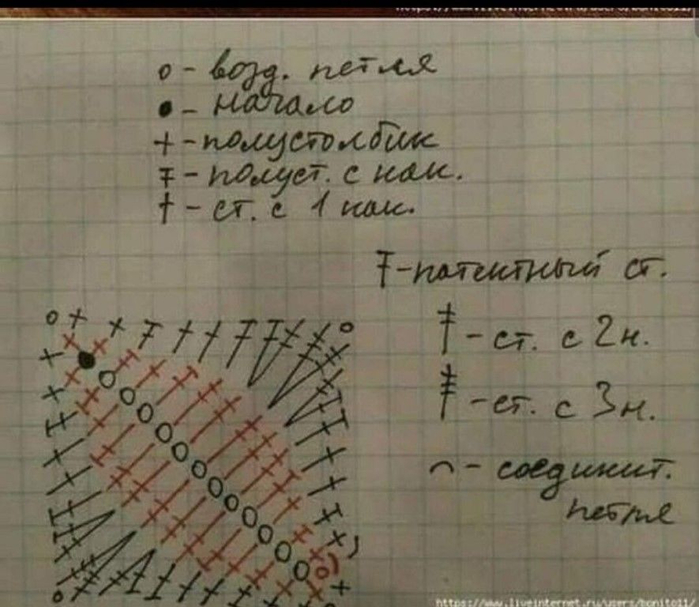 o - возд. петля
● - начало
+ - полустолбик
Ŧ - полуст. с нак.
† - ст. с 1 нак.
Ŧ - патентный ст.
‡ - ст. с 2 н.
ст. с 3 н.
⌒ - соединит.
петля
https://www.liveinternet.ru/users/bonito11/